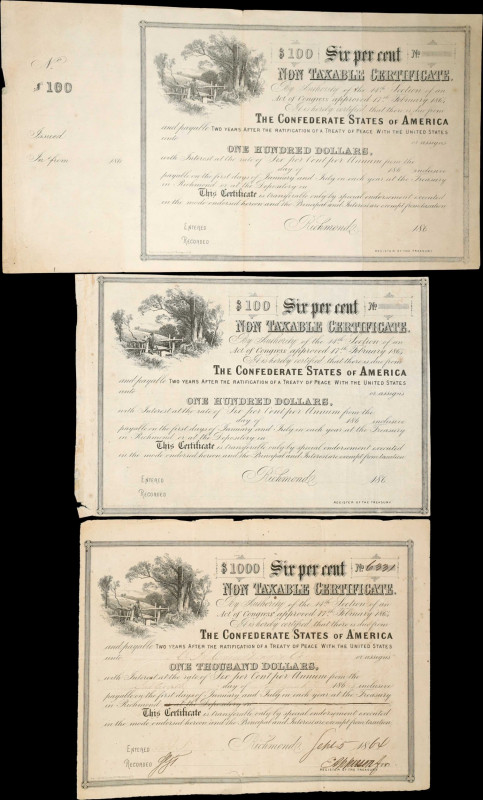 No
$100
Issued
In favor 186
$100 Six per cent No
NON TAXABLE CERTIFICATE.
By Authority of the 14th Section of an
Act of Congress approved 17th February 1864
It is hereby certified that there is due from
THE CONFEDERATE STATES OF AMERICA
and payable TWO YEARS AFTER THE RATIFICATION OF A TREATY OF PEACE WITH THE UNITED STATES
unto or assigns
ONE HUNDRED DOLLARS,
with Interest at the rate of Six per Cent per Annum from the
day of 186 inclusive
payable on the first days of January and July in each year at the Treasury
in Richmond or at the Depository in
This Certificate is transferable only by special endorsement executed
in the mode endorsed hereon and the Principal and Interest are exempt from taxation
Richmond, 186
ENTERED
RECORDED
REGISTER OF THE TREASURY
$100 Six per cent No
NON TAXABLE CERTIFICATE.
By Authority of the 14th Section of an
Act of Congress approved 17th February 1864
It is hereby certified that there is due from
THE CONFEDERATE STATES OF AMERICA
and payable TWO YEARS AFTER THE RATIFICATION OF A TREATY OF PEACE WITH THE UNITED STATES
unto or assigns
ONE HUNDRED DOLLARS,
with Interest at the rate of Six per Cent per Annum from the
day of 186 inclusive
payable on the first days of January and July in each year at the Treasury
in Richmond or at the Depository in
This Certificate is transferable only by special endorsement executed
in the mode endorsed hereon and the Principal and Interest are exempt from taxation
Richmond, 186
ENTERED
RECORDED
REGISTER OF THE TREASURY
$1000 Six per cent No
NON TAXABLE CERTIFICATE.
By Authority of the 14th Section of an
Act of Congress approved 17th February 1864
It is hereby certified that there is due from
THE CONFEDERATE STATES OF AMERICA
and payable TWO YEARS AFTER THE RATIFICATION OF A TREATY OF PEACE WITH THE UNITED STATES
unto or assigns
ONE THOUSAND DOLLARS,
with Interest at the rate of Six per Cent per Annum from the
day of 186 inclusive
payable on the first days of January and July in each year at the Treasury
in Richmond or at the Depository in
This Certificate is transferable only by special endorsement executed
in the mode endorsed hereon and the Principal and Interest are exempt from taxation
Richmond, Sept 5 1864
ENTERED
RECORDED
REGISTER OF THE TREASURY